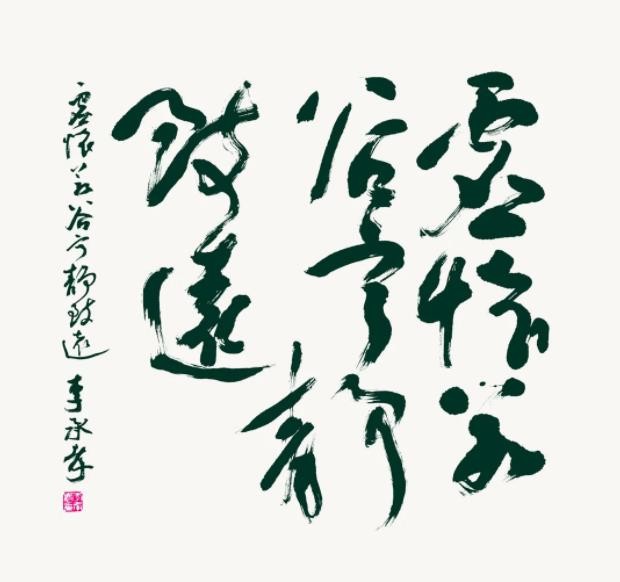 虚怀若
谷宁静
致远
虚怀若谷宁静致远 李承孝